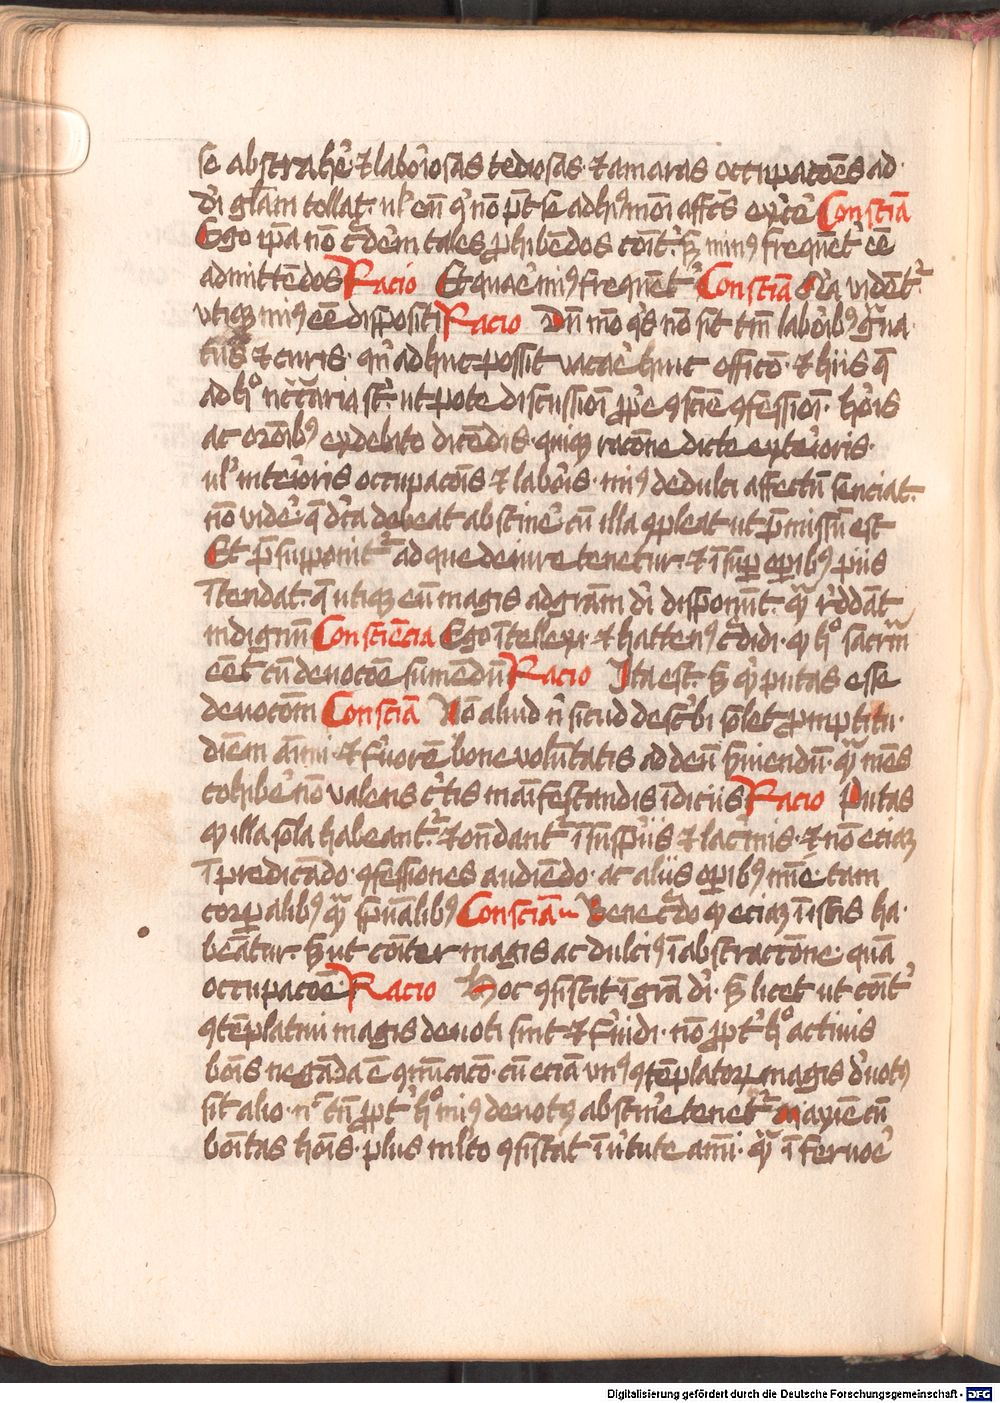 se abstrahe͛ · ⁊ laboriosas tediosas · ⁊ amaras occupacōes ad ·
di͛ glām tollat · ul͛ eū q͛ nō pt̄ se ad hꝰmōi affc̄s exc̄e͛ Consciā
Ego ip̄a nō c͛dēm tales ꝓhibēdos cōit͛ · sꝫ minꝰ frequēt͛ eē
admittēdos Racio Et quae͛ miꝰ frequēt͛ Consciā Q͛a vidēt͛
utiqꝫ miꝰ eē dispositi Racio Dū mō q͛s nō sit tm̄ laboribꝰ g͛ua
tus ⁊ curis · qn̄ adhuc possit vacae͛ huic officō · ⁊ hiis q̄
ad hͦ nc̄c̄aria st̄ · ut pote discussiōi ꝓp͛e ꝯsciē ꝯfessiōi · hōis
ac orōibꝰ ex debito dicēdis · quiqꝫ racōne dicte exterioris ·
ul͛ interioris occupacōis ⁊ laboris · miꝰ de dulci affectu senciat ·
nō vide͛ · q̄ d͛ca debeat abstine͛ cū illa ꝯpleat ut p̄missū est
Et p̄supponit͛ ad que de iure tenetur · ⁊ īsuꝑ oꝑibꝰ piis
ītendat · q̄ utiqꝫ eū magis ad grām di͛ disponūt · qᷓ r͛ddāt
indignū Consciēcia Ego ītellexi · ⁊ hactenꝰ c͛didi · ꝙ hͦ sacrm̄
eēt cū deuocōe sumēdū Racio Ita est · sꝫ q͛ putas esse
deuocōm Consciā Nō aliud n͛ sicud desc͛bi solet ꝓmptitu ·
diēm aī̄mi · ⁊ f͛uorē bone volūtatis ad deū s͛uiendū · qᷓ mēs
cohibe͛ nō valens c͛tis manifestandis īdiciis Racio Putas
ꝙ illa sola habeant͛ · ⁊ ondant͛ ī suspiis ⁊ lac͛mis · ⁊ nō eciaꝫ
ī predicādo · ꝯfessiones audiēdo · ac aliis oꝑibꝰ mīe · tam
corꝑalibꝰ qᷓ spūalibꝰ Consciā Bene c͛do ꝙ eciaꝫ ī istis ha ·
beātur · sꝫ ut cōiter magis ac dulciꝰ ī abstractōne · quā
occupacōe Racio Hoc ꝯsistit ī grā di͛ · sꝫ licet ut cōit͛
ꝯtēplatiui magis deuoti sint ⁊ f͛uidi · nō ꝓpt͛ hͦ actiuis
bōis negāda ē ꝯmūicacō · cū eciā vnꝰ ꝯtēplatoꝝ magis d͛uotꝰ
sit alio · nͨ tn̄ ꝓpt͛ hͦ miꝰ deuotꝰ abstine͛ tenet͛ maxīe cū
bōitas hōis · plus ml͛to ꝯsistat ī u͛tute aīmi · qᷓ ī feruoe͛
Digitalisierung gefördert durch die Deutsche Forschungsgemeinschaft - DFG